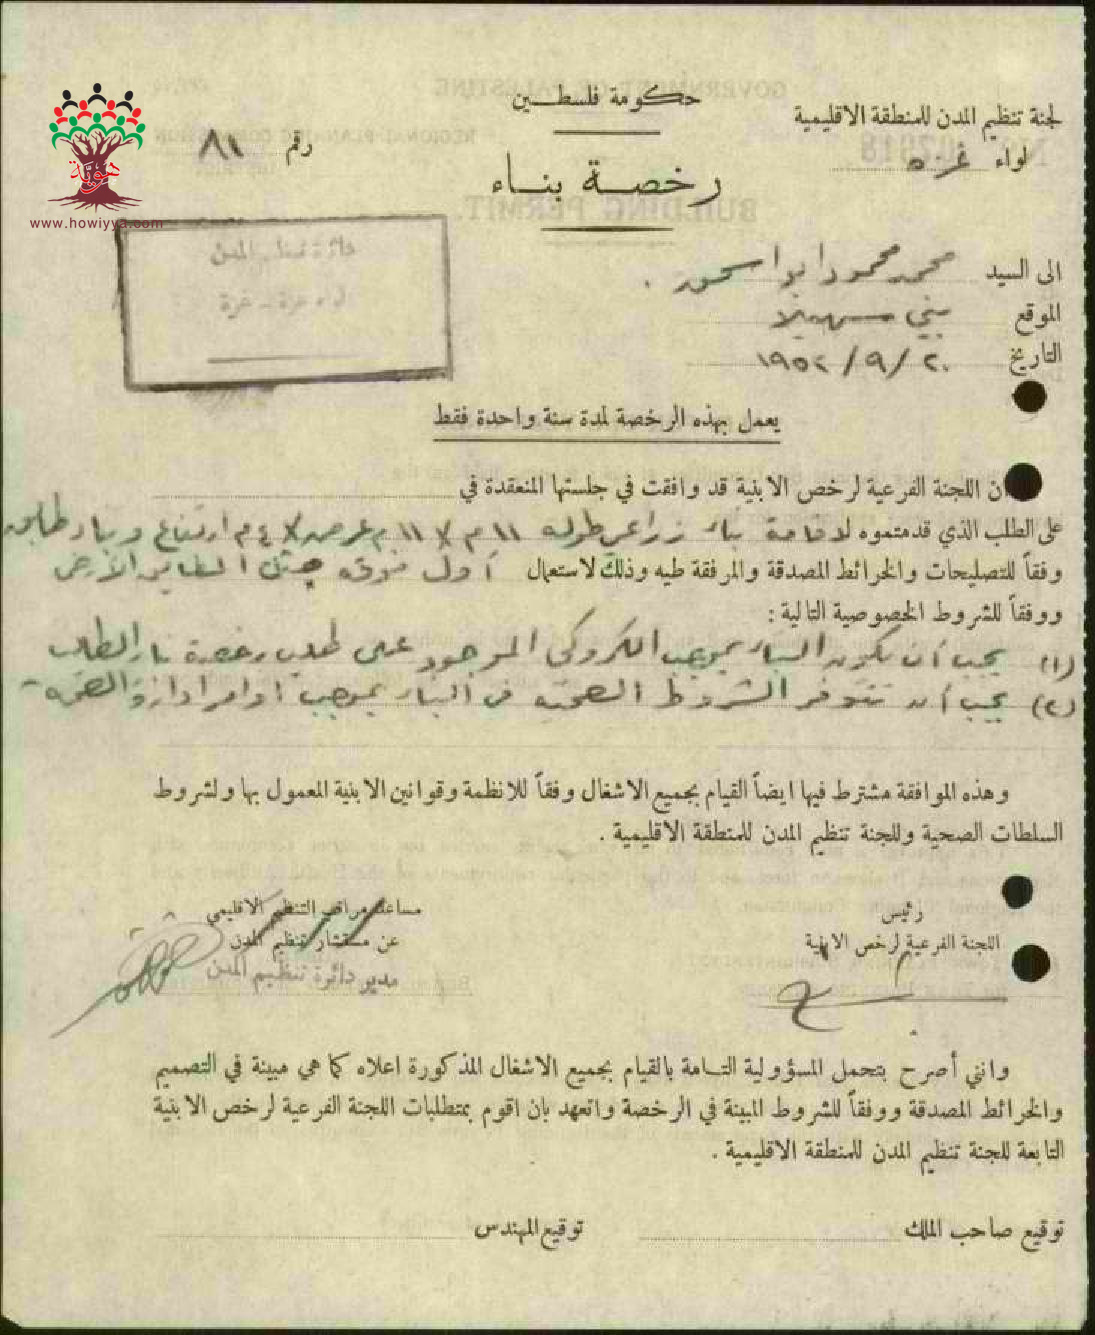 حكومة فلسطين
لجنة تنظيم المدن للمنطقة الاقليمية
لواء غزه
رقم ٨١
رخصة بناء
هوية
www.howiyya.com
دائرة تنظيم المدن
لواء غزة - غزة
الى السيد محمد محمود ابو اسحق .
الموقع بني سهيلا
التاريخ ٢٠ / ٩ / ١٩٥٢
يعمل بهذه الرخصة لمدة سنة واحدة فقط
ان اللجنة الفرعية لرخص الابنية قد وافقت في جلستها المنعقدة في
على الطلب الذي قدمتموه لاقامة بناء ١١ م ارتفاع وبناء طابق
وفقاً للتصليحات والخرائط المصدقة والمرفقة طيه وذلك لاستعمال أول فوقه الطابق الأرضي
ووفقاً للشروط الخصوصية التالية :
(١) يجب أن يكون البناء بموجب الكروكي الموجود على طلب رخصة بناء الطالب
(٢) يجب أن تتوفر الشروط الصحية في البناء بموجب اوامر ادارة الصحة
وهذه الموافقة مشترط فيها ايضاً القيام بجميع الاشغال وفقاً للانظمة وقوانين الابنية المعمول بها ولشروط
السلطات الصحية وللجنة تنظيم المدن للمنطقة الاقليمية .
رئيس
اللجنة الفرعية لرخص الابنية
مساعد مراقب التنظيم الاقليمي
عن مستشار تنظيم المدن
مدير دائرة تنظيم المدن
وانني أصرح بتحمل المسؤولية التامة بالقيام بجميع الاشغال المذكورة اعلاه كما هي مبينة في التصميم
والخرائط المصدقة ووفقاً للشروط المبينة في الرخصة واتعهد بان اقوم بمتطلبات اللجنة الفرعية لرخص الابنية
التابعة للجنة تنظيم المدن للمنطقة الاقليمية .
توقيع صاحب الملك
توقيع المهندس